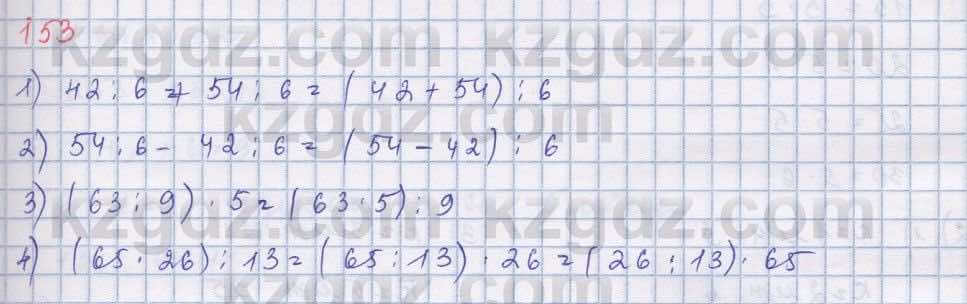 kzgdz.com kzgdz.com
153
1) 42 : 6 + 54 : 6 = (42 + 54) : 6
kzgdz.com
2) 54 : 6 - 42 : 6 = (54 - 42) : 6
3) (63 : 9) · 5 = (63 · 5) : 9
kzgdz.com kzgdz.com
4) (65 · 26) : 13 = (65 : 13) · 26 = (26 : 13) · 65